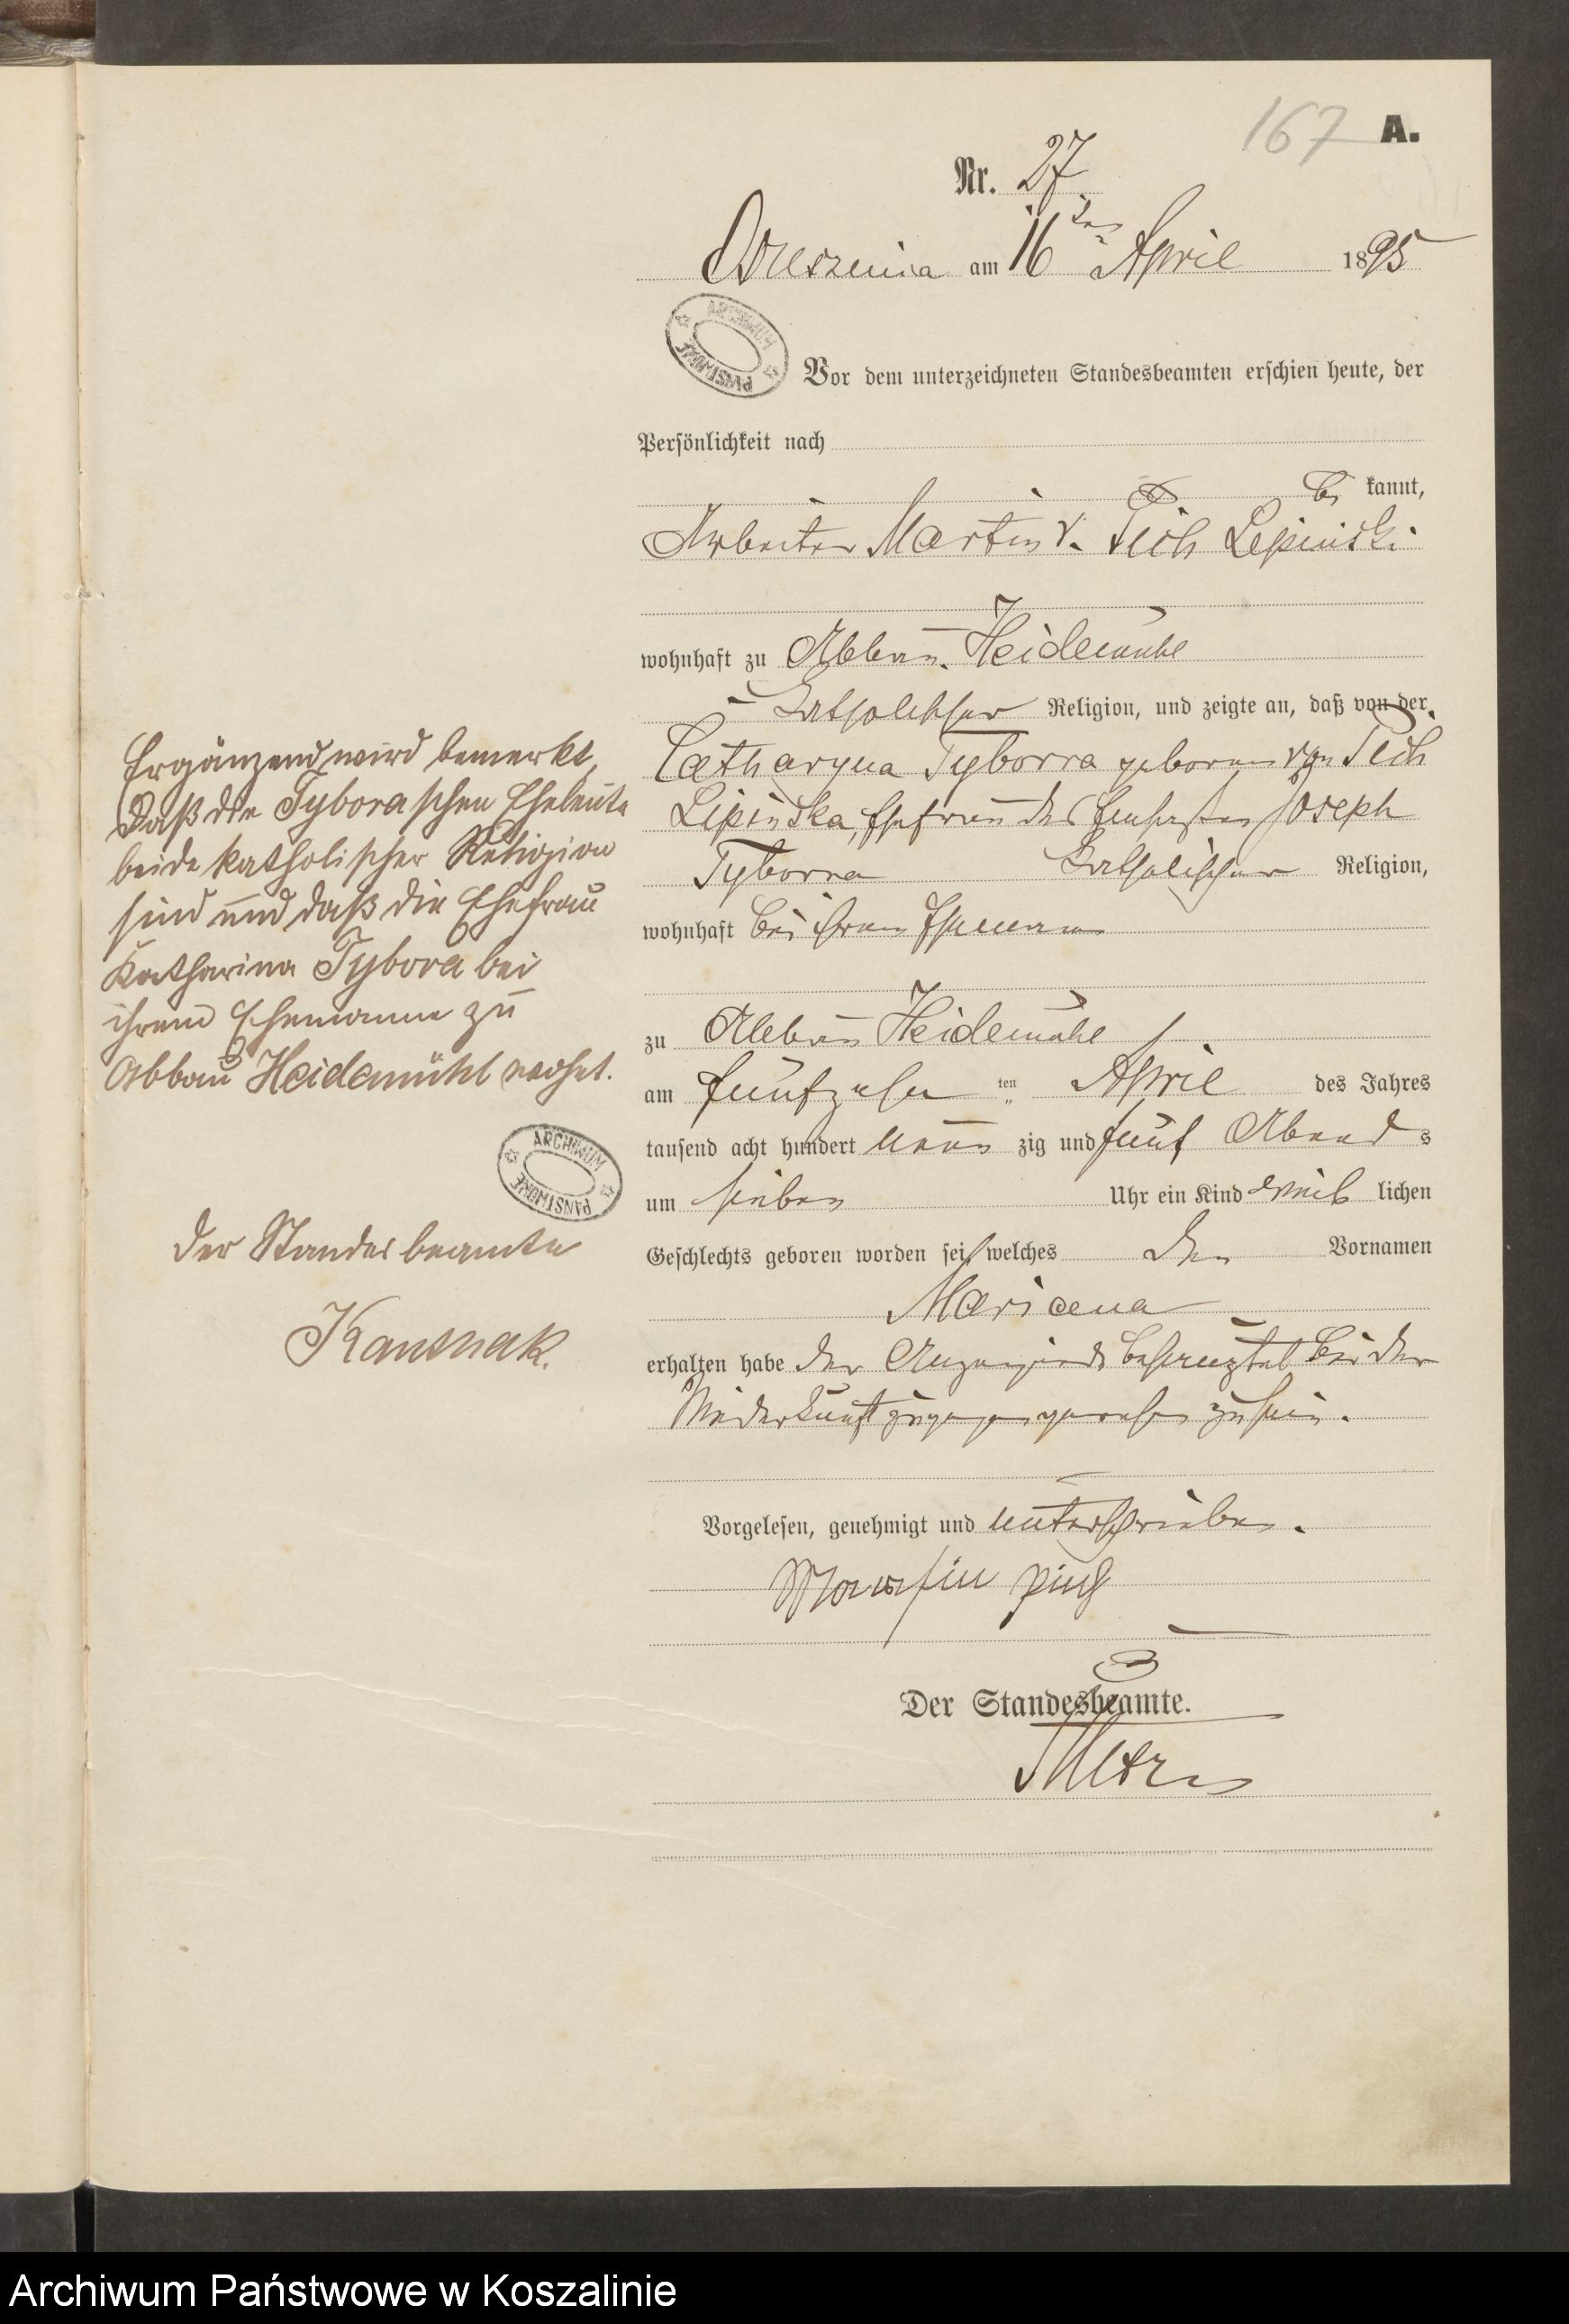 167 A.
Nr. 27
am 16ten April 1895
ARCHIWUM PAŃSTWOWE
Vor dem unterzeichneten Standesbeamten erschien heute, der
Persönlichkeit nach
be kannt,
Arbeiter Martin v. Pich Lepinski
wohnhaft zu Abbau Heidemühl
katholischer Religion, und zeigte an, daß von der
Catharyna Tyborra geborene von Pich
Lipinska, Ehefrau des Joseph
Tyborra katholischer Religion,
wohnhaft bei ihrem Ehemann
zu Abbau Heidemühl
am fünfzehn ten April des Jahres
tausend acht hundert neun zig und fünf Abend s
um sieben Uhr ein Kind weib lichen
Geschlechts geboren worden sei, welches den Vornamen
Marianna
erhalten habe der Anzeigende behauptet bei der
Niederkunft zugegen gewesen zu sein.
Vorgelesen, genehmigt und unterschrieben.
Martin Pich
Der Standesbeamte.
Ergänzend wird bemerkt,
daß die Tybora'schen Eheleute
beide katholischer Religion
sind und daß die Ehefrau
Katharina Tybora bei
ihrem Ehemanne zu
Abbau Heidemühl wohnt.
ARCHIWUM PAŃSTWOWE
Der Standesbeamte
Archiwum Państwowe w Koszalinie